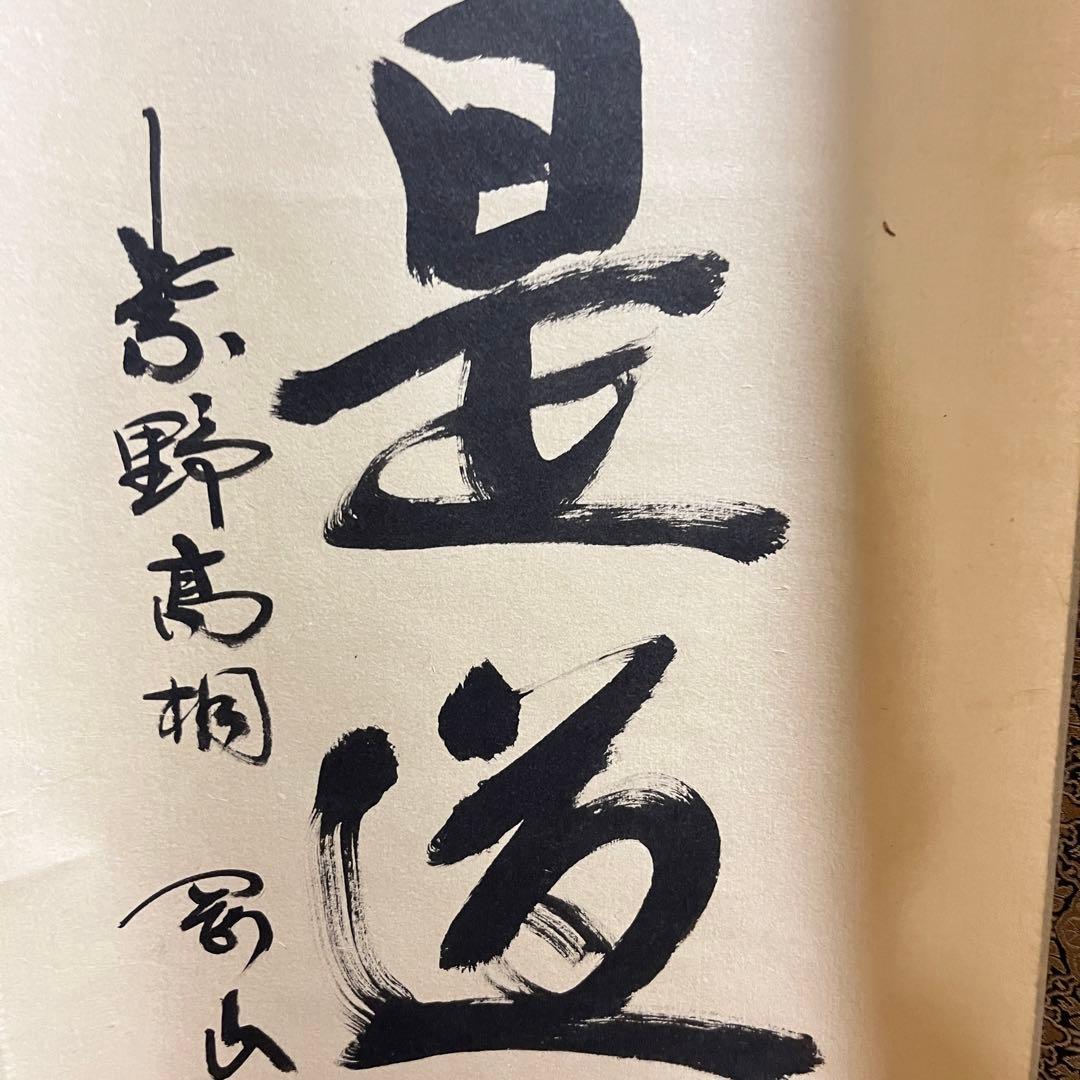 是道
紫野高桐 剛山